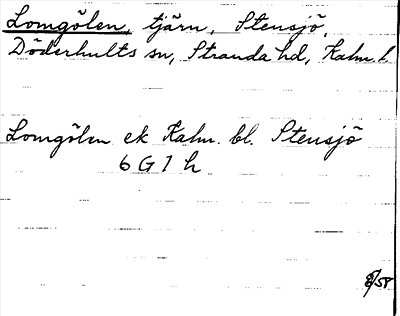 Lomgölen, tjärn, Stensjö,
Döderhults sn, Stranda hd, Kalm. l.
Lomgölen ek Kalm. bl. Stensjö
6 G 1 h
8/58